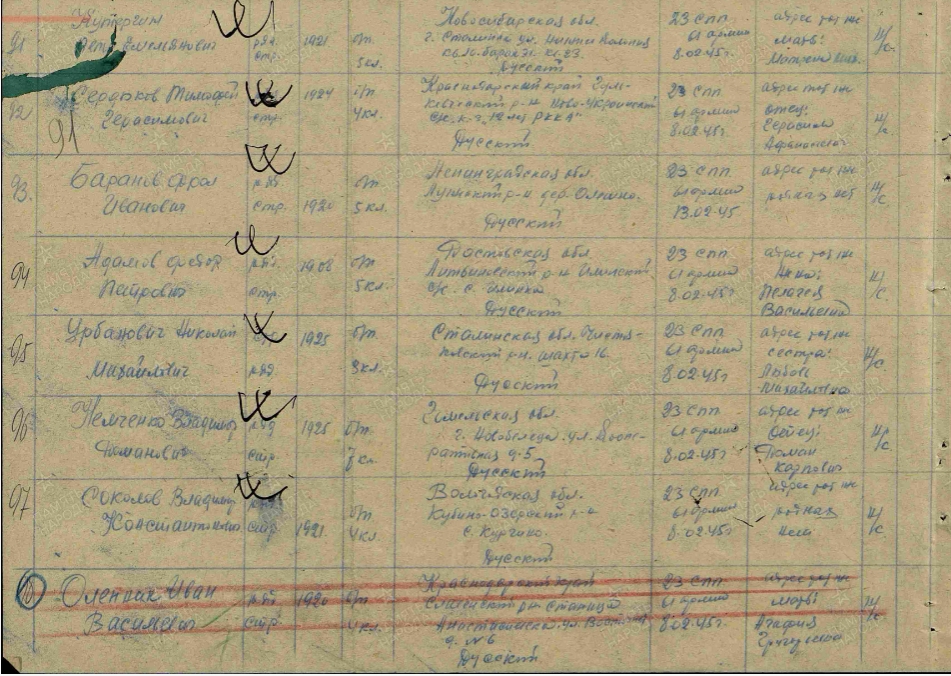 91 Кутергин Петр Емельянович ряд. стр. 1921 бп 5 кл. Новосибирская обл.
г. Сталинск ул. Нижняя Колония
барак кв. 23.
Русский
23 СПП 61 армии 8.02.45г
адрес тот же мать:
ш/с.
92 91 Сердюков Тимофей Герасимович стр. 1924 бп 4 кл. Краснодарский край
р-н Ново-Украинский
с/с. к-з "12 лет РККА"
Русский
23 СПП 61 армии 8.02.45г
адрес тот же отец: Герасим Афанасьевич
ш/с.
93. Баранов Фрол Иванович ряд. стр. 1920 бп 5 кл. Ленинградская обл.
р-н дер.
Русский
23 СПП 61 армии 13.02.45
адрес родных нет
ш/с.
94 Адамов Федор Петрович ряд. стр. 1902 бп 5 кл. Ростовская обл.
Литвиновский р-н Ильинский
с/с. с. Ильинка
Русский
23 СПП 61 армии 8.02.45г
адрес тот же жена: Пелагея Васильевна
ш/с.
95 Урбанович Николай Михайлович ряд. 1925 бп 3 кл. Сталинская обл. Чистя-
ковский р-н. шахта 16
Русский
23 СПП 61 армии 8.02.45г
адрес тот же сестра: Любовь Михайловна
ш/с.
96 Немченко Владимир Романович ряд. стр. 1925 бп 7 кл. Гомельская обл.
г. Новобелица ул. Коопе-
ративная д-5.
Русский
23 СПП 61 армии 8.02.45г
адрес тот же отец: Роман Карпович
ш/с.
97 Соколов Владимир Константинович стр. 1921 бп 4 кл. Вологодская обл.
Кубино-Озерский р-н
с. Кургино.
Русский
23 СПП 61 армии 8.02.45г
родных нет
ш/с
98 Олейник Иван Васильевич ряд. стр. 1920 бп 4 кл. Краснодарский край
Славянский р-н станица
Анастасиевская ул.
д. №6
Русский
23 СПП 61 армии 8.02.45г
адрес тот же мать: Агафия Григорьевна
ш/с.